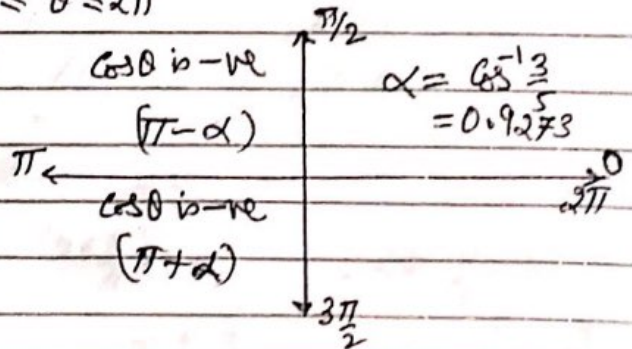 = θ = 2π
π/2
cosθ is -ve
α = cos⁻¹ 3/5
(π-α)
= 0.9273
π
0
2π
cosθ is -ve
(π+α)
3π/2